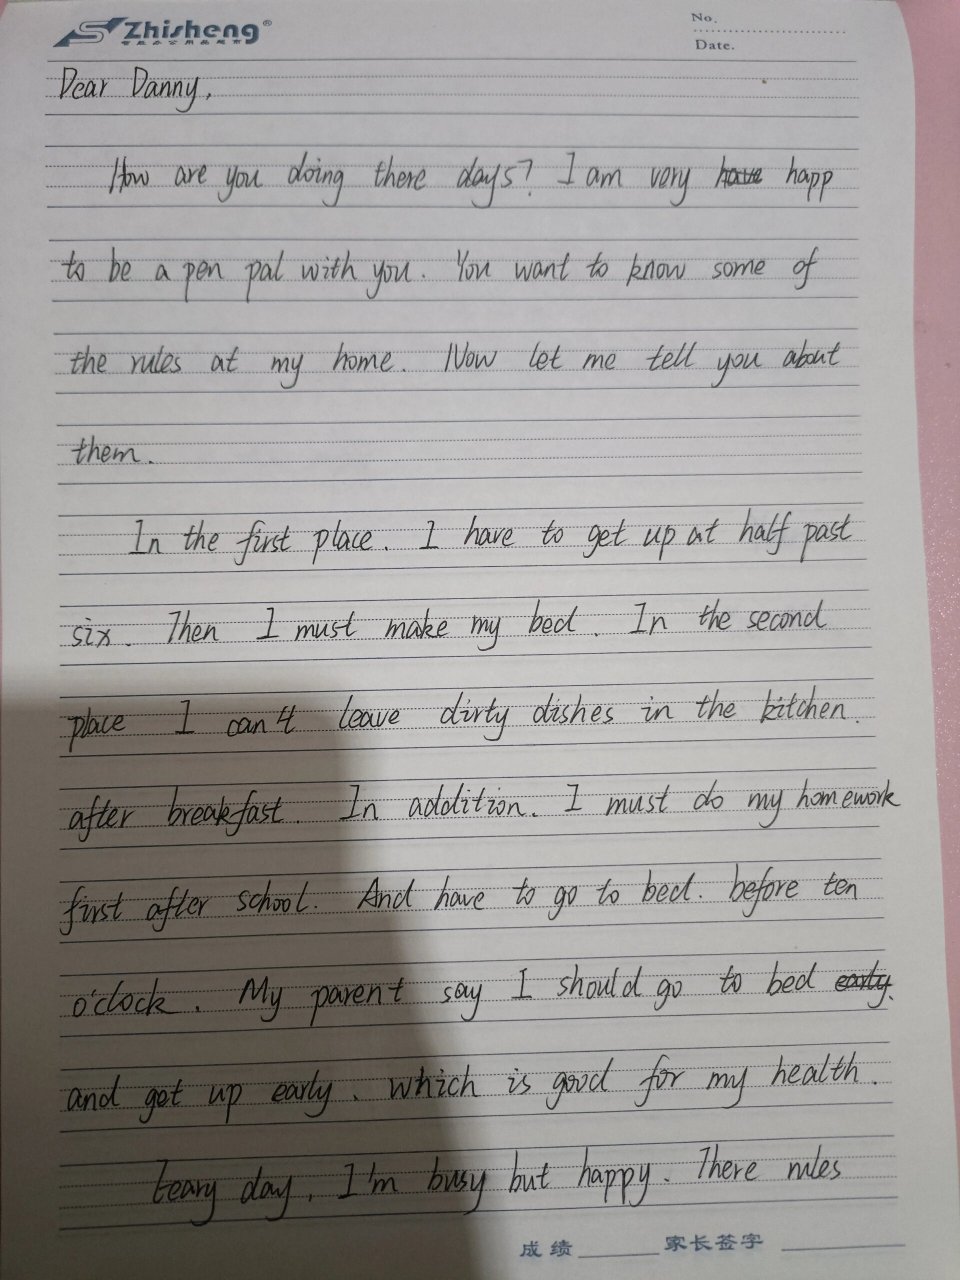 Zhisheng®
No.
Date.
Dear Danny,
How are you doing there days? I am very have happ
to be a pen pal with you. You want to know some of
the rules at my home. Now let me tell you about
them.
In the first place. I have to get up at half past
six. Then I must make my bed. In the second
place I can't leave dirty dishes in the kitchen.
after breakfast. In addition. I must do my homework
first after school. And have to go to bed. before ten
o'clock. My parent say I should go to bed early.
and got up early. which is good for my health.
Eeary day, I'm busy but happy. There rules
成绩 家长签字